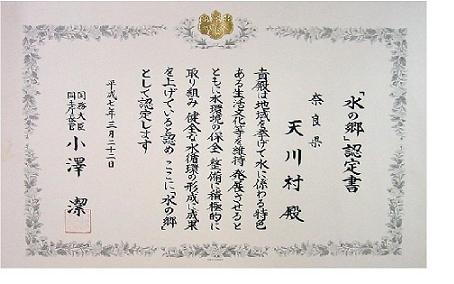 「水の郷」認定書
奈良県
天川村 殿
貴殿は地域を挙げて水に係わる特色
ある生活文化等を維持 発展させると
ともに水環境の保全 整備に積極的に
取り組み 健全な水循環の形成に成果
を上げていると認め ここに「水の郷」
として認定します
平成七年三月二十二日
国務大臣
国土庁長官
小澤 潔